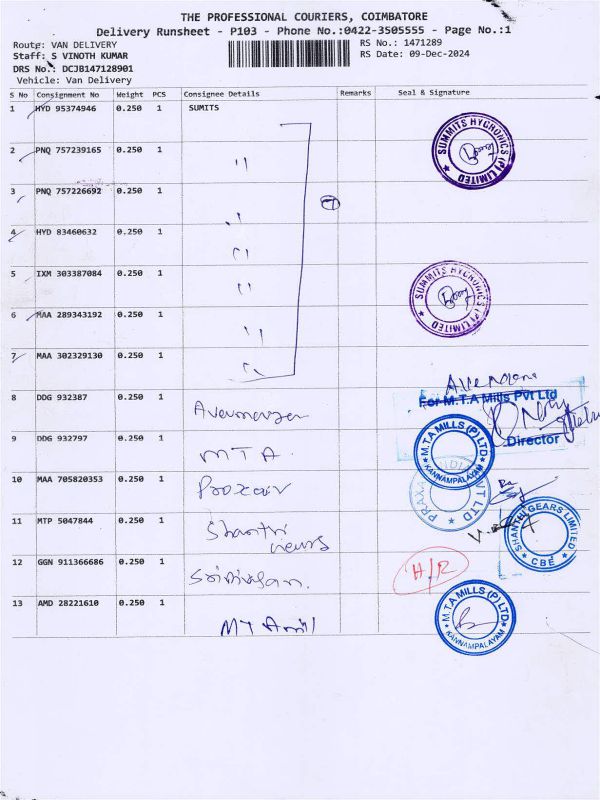 THE PROFESSIONAL COURIERS, COIMBATORE
Delivery Runsheet - P103 - Phone No.:0422-3505555 - Page No.:1
Route: VAN DELIVERY
RS No.: 1471289
Staff: S VINOTH KUMAR
RS Date: 09-Dec-2024
DRS No.: DCJB147128901
Vehicle: Van Delivery
S No Consignment No Weight PCS Consignee Details Remarks Seal & Signature
1 HYD 95374946 0.250 1 SUMITS
SUMMITS HYCRONICS (P) LIMITED
2 PNQ 757239165 0.250 1 "
3 PNQ 757226692 0.250 1 "
7
4 HYD 83460632 0.250 1 "
5 IXM 303387084 0.250 1 "
SUMMITS HYCRONICS (P) LIMITED
6 MAA 289343192 0.250 1 "
7 MAA 302329130 0.250 1 "
8 DDG 932387 0.250 1
For M.T.A Mills Pvt Ltd
Director
9 DDG 932797 0.250 1 MTA.
M.T.A MILLS (P) LTD KANNAMPALAYAM
10 MAA 705820353 0.250 1
11 MTP 5047844 0.250 1 Shanthi
SHANTHI GEARS LIMITED CBE
12 GGN 911366686 0.250 1
H/R
13 AMD 28221610 0.250 1
M.T.A MILLS (P) LTD KANNAMPALAYAM